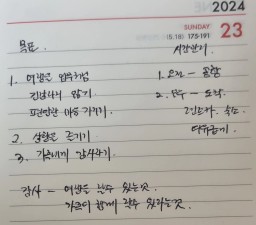 2024
SUNDAY 23
(5.18) 175-191
목표
시간만기
1. 여행은 업무처럼
긴장하지 않기
편안한 마음 가지기
1. 오전 - 공항
2. 오후 - 도착
숙소
2. 상황을 즐기기
3. 가족에게 감사하기
감사 - 여행을 할수 있는것.
가족이 함께 할수 있다는것.